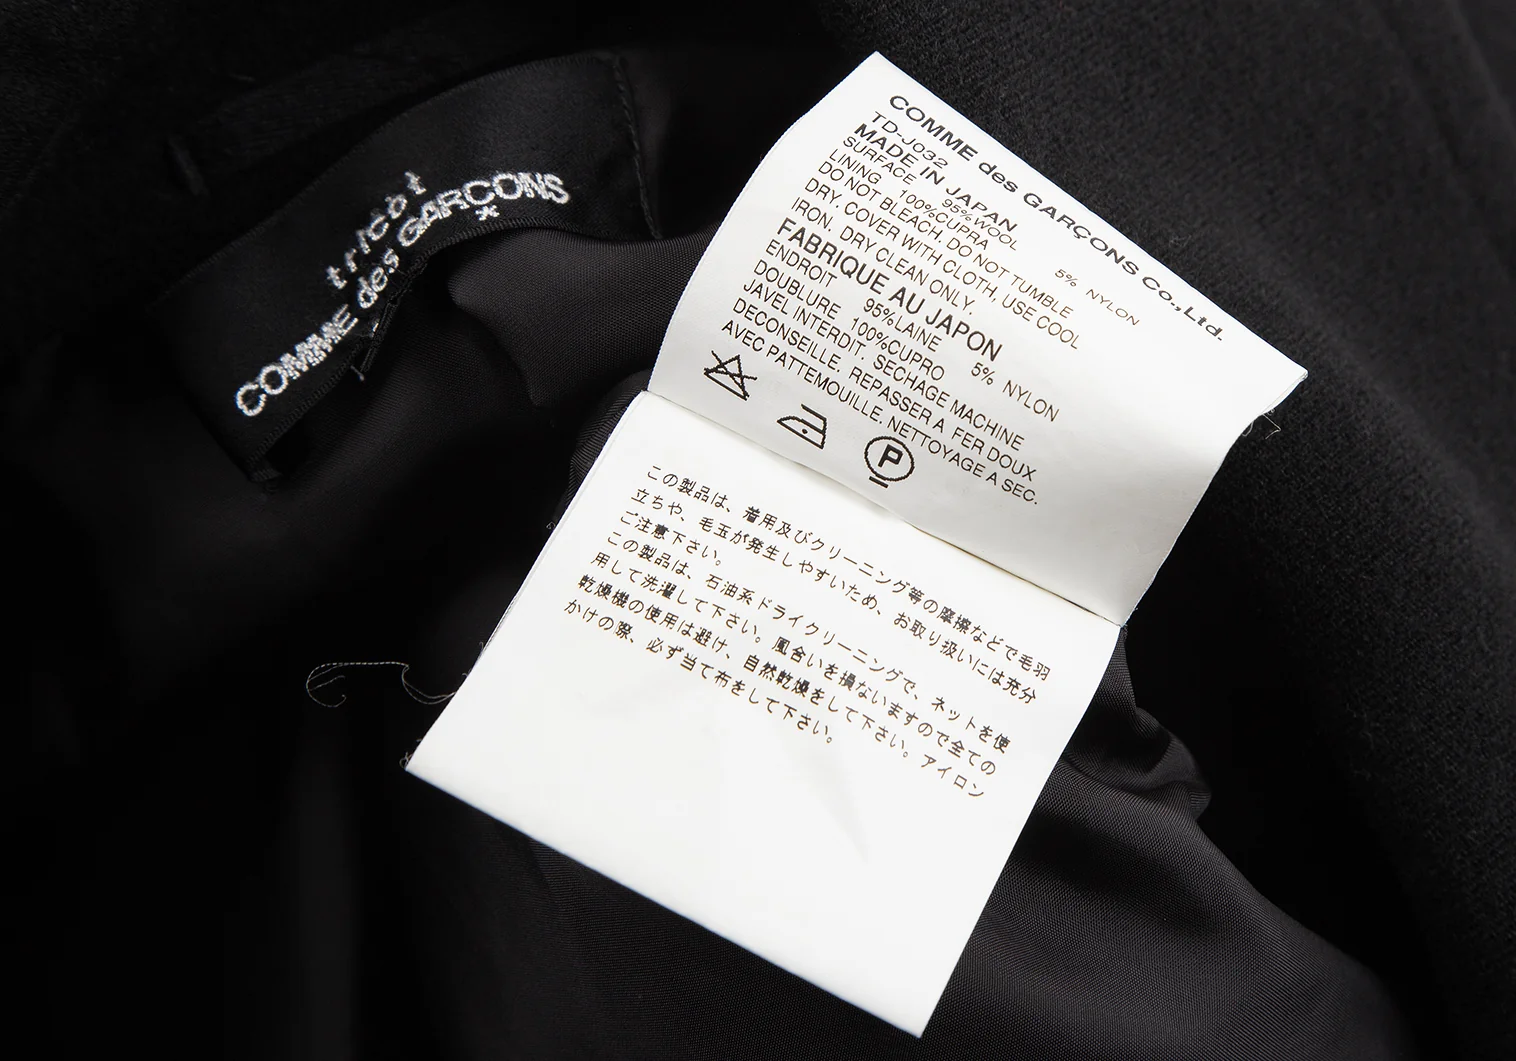 tricot
COMME des GARÇONS
COMME des GARÇONS Co.,Ltd.
TD-J032
MADE IN JAPAN
SURFACE 95%WOOL 5% NYLON
LINING 100%CUPRA
DO NOT BLEACH. DO NOT TUMBLE
DRY. COVER WITH CLOTH, USE COOL
IRON. DRY CLEAN ONLY.
FABRIQUE AU JAPON
ENDROIT 95%LAINE 5% NYLON
DOUBLURE 100%CUPRO
JAVEL INTERDIT. SECHAGE MACHINE
DECONSEILLE. REPASSER A FER DOUX
AVEC PATTEMOUILLE. NETTOYAGE A SEC.
P
この製品は、着用及びクリーニング等の摩擦などで毛羽
立ちや、毛玉が発生しやすいため、お取り扱いには充分
ご注意下さい。
この製品は、石油系ドライクリーニングで、ネットを使
用して洗濯して下さい。風合いを損ないますので全ての
乾燥機の使用は避け、自然乾燥をして下さい。アイロン
かけの際、必ず当て布をして下さい。